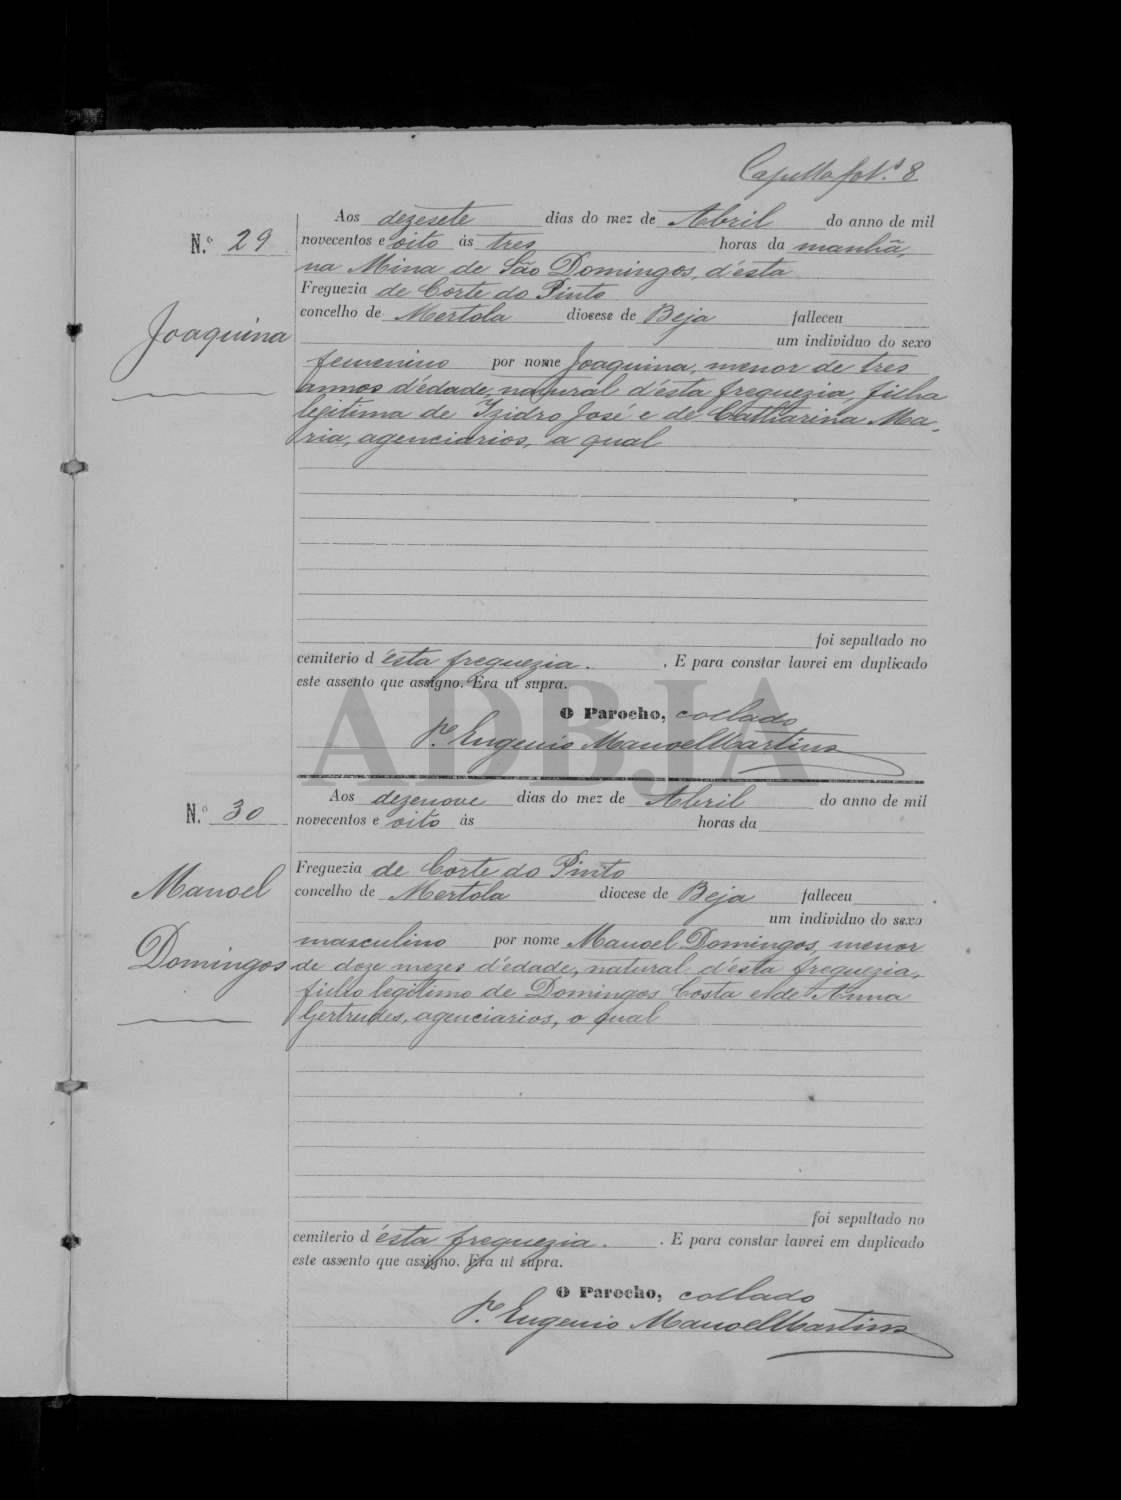 8
Aos dezesete dias do mez de Abril do anno de mil
N.º 29
novecentos e oito ás tres horas da manhã,
na Mina de São Domingos, d'ésta
Freguezia de Corte do Pinto
concelho de Mertola diocese de Beja falleceu
Joaquina
um individuo do sexo
femenino por nome Joaquina, menor de tres
annos d'édade, natural d'ésta freguezia, filha
legitima de Izidro José e de Catharina Ma-
ria, agenciarios, a qual
foi sepultado no
cemiterio d'ésta freguezia. . E para constar lavrei em duplicado
este assento que assigno. Era ut supra.
ADBJA
O Parocho, collado
P.e Eugenio Manoel Martins
Aos dezenove dias do mez de Abril do anno de mil
N.º 30
novecentos e oito ás horas da
Freguezia de Corte do Pinto
Manoel
concelho de Mertola diocese de Beja falleceu
um individuo do sexo
masculino por nome Manoel Domingos, menor
Domingos
de doze mezes d'édade, natural d'ésta freguezia,
filho legitimo de Domingos Costa e de Anna
Gertrudes, agenciarios, o qual
foi sepultado no
cemiterio d'ésta freguezia. . E para constar lavrei em duplicado
este assento que assigno. Era ut supra.
O Parocho, collado
P.e Eugenio Manoel Martins